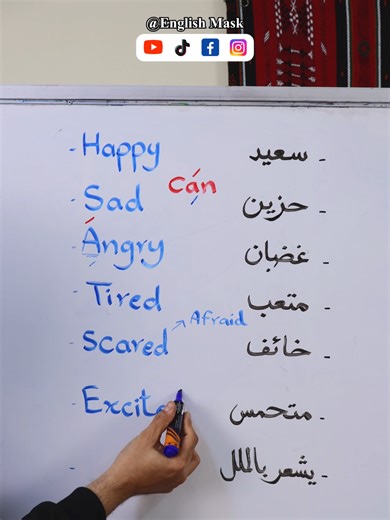 @English Mask
- Happy سعيد -
cán
- Sad حزين -
- Ángry غضبان -
- Tired متعب -
Afraid
- Scared خائف -
- Excite متحمس -
- يشعر بالملل -